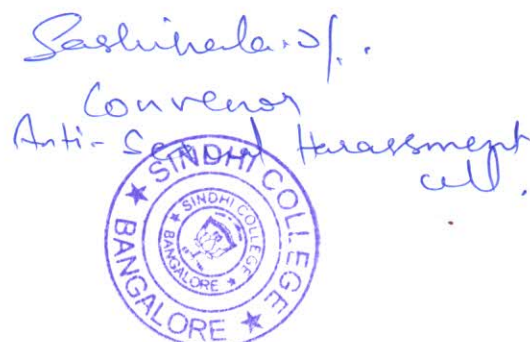 Convenor
Anti-Sexual Harassment
Cell.
SINDHI COLLEGE
BANGALORE
SINDHI COLLEGE
BANGALORE